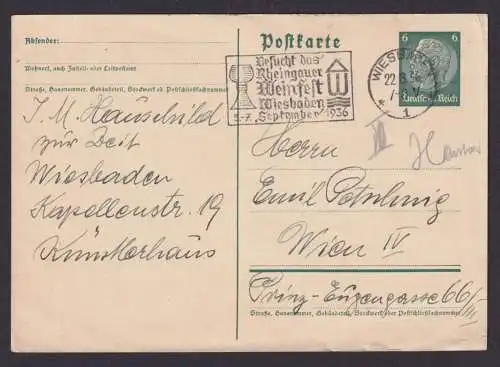 Postkarte
Absender:
Wohnort, auch Zustell- oder Leitpostamt
Straße, Hausnummer, Gebäudeteil, Stockwerk od. Postschließfachnummer
J. M. Hauschild
zur Zeit
Wiesbaden
Kapellenstr. 19
Künstlerhaus
Besucht das
Rheingauer
Weinfest
Wiesbaden
5.-7. September 1936
WIESBADEN
22.8.
1
6 6
Deutsches Reich
Herrn
Emil
Wien IV
Prinz-Eugengasse 66/III
Straße, Hausnummer, Gebäudeteil, Stockwerk oder Postschließfachnummer